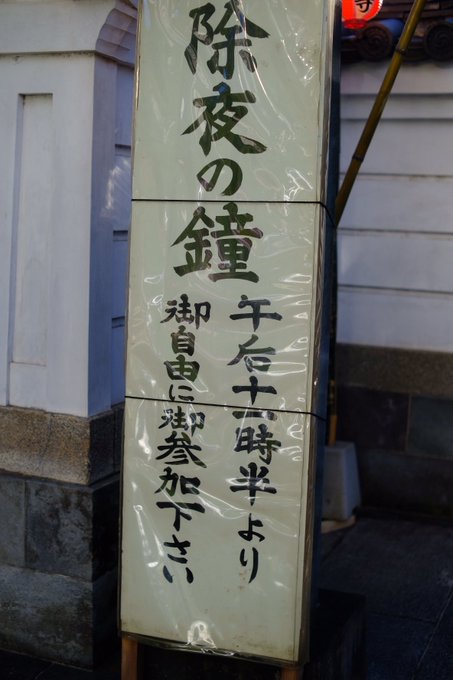 除夜の鐘
午后十一時半より
御自由に御参加下さい
寺